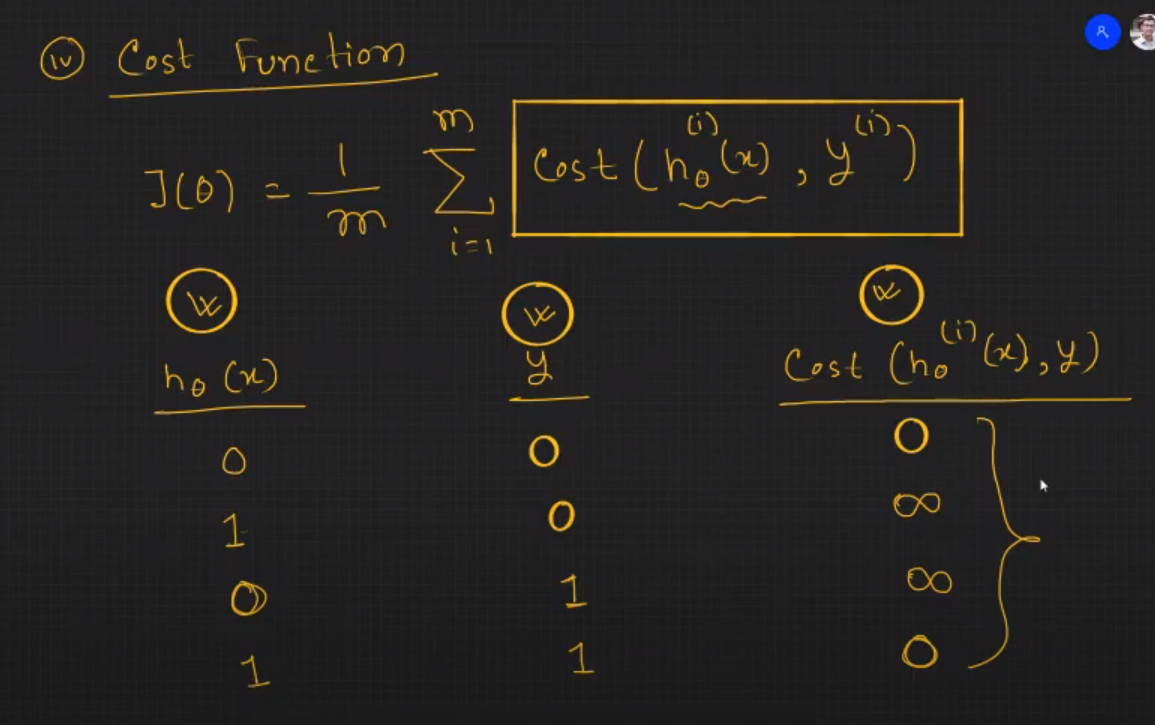 (iv) Cost Function
J(θ) = 1/m Σ_{i=1}^{m} Cost(h_θ^{(i)}(x), y^{(i)})
h_θ(x) y Cost(h_θ^{(i)}(x), y)
0 0 0
1 0 ∞
0 1 ∞
1 1 0